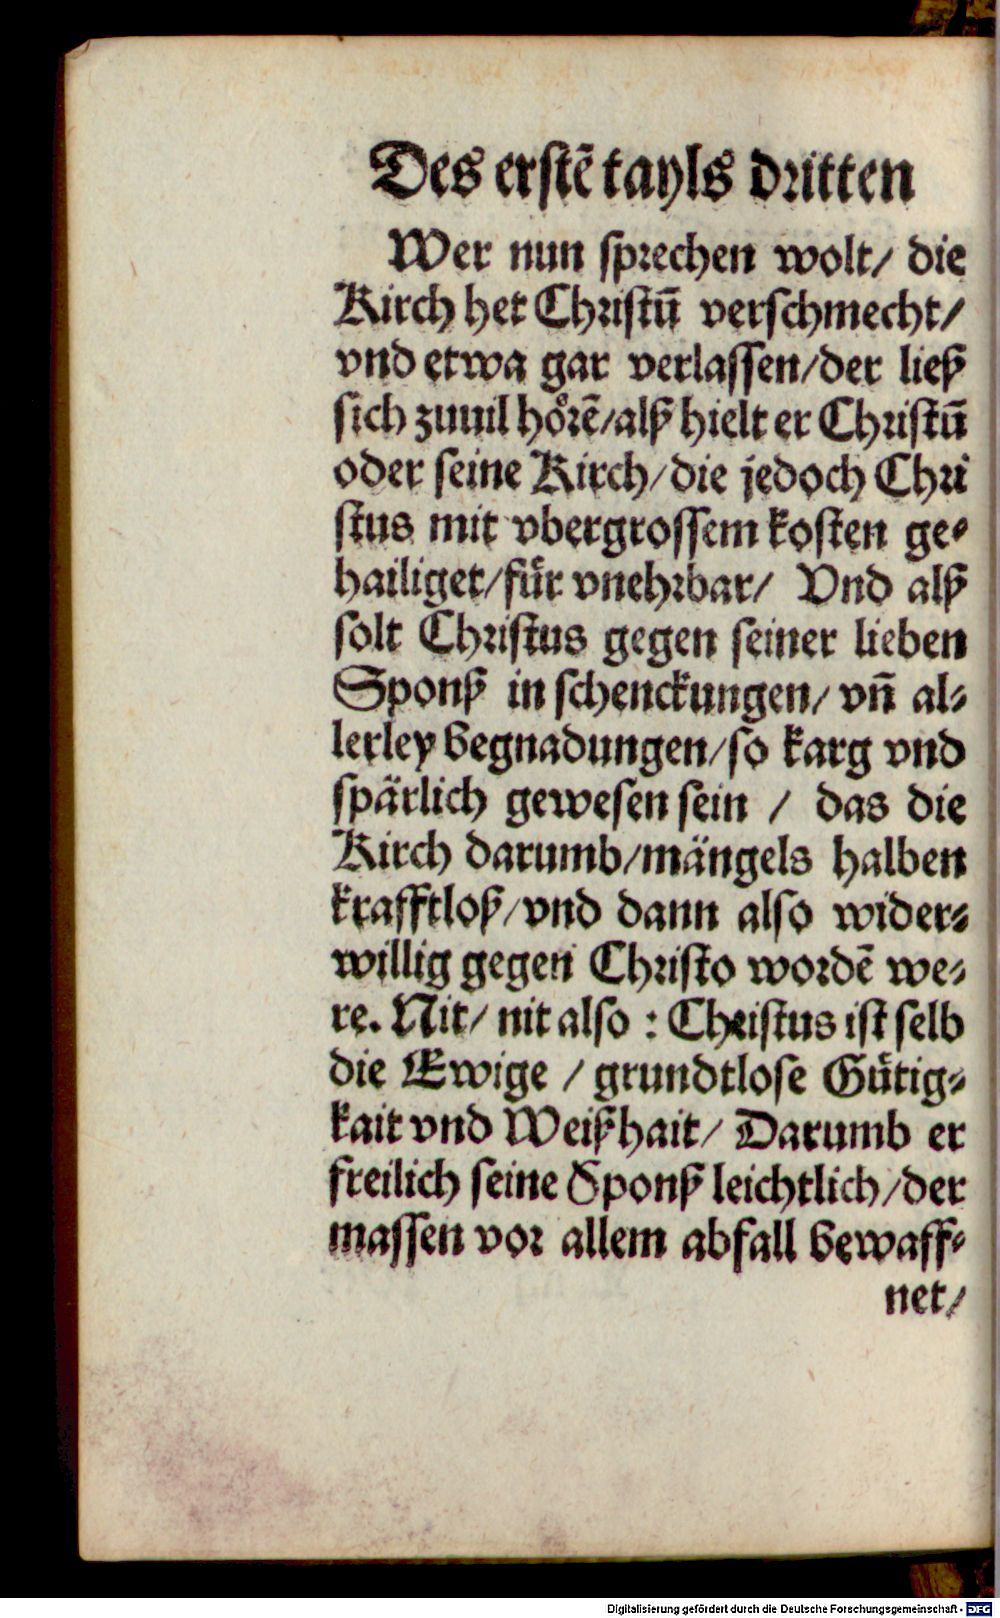 Des erstē tayls dritten
Wer nun sprechen wolt/ die
Kirch het Christū verschmecht/
vnd etwa gar verlassen/der ließ
sich zuuil hoͤrē/alß hielt er Christū
oder seine Kirch/die jedoch Chri
stus mit vbergrossem kosten ge-
hailiget/fuͤr vnehrbar/ Vnd alß
solt Christus gegen seiner lieben
Sponß in schenckungen/ vn̄ al-
lerley begnadungen/so karg vnd
spaͤrlich gewesen sein / das die
Kirch darumb/maͤngels halben
krafftloß/vnd dann also wider-
willig gegen Christo wordē we-
re. Nit/ nit also : Christus ist selb
die Ewige / grundtlose Guͤtig-
kait vnd Weißhait/ Darumb er
freilich seine Sponß leichtlich/der
massen vor allem abfall bewaff-
net/
Digitalisierung gefördert durch die Deutsche Forschungsgemeinschaft - DFG